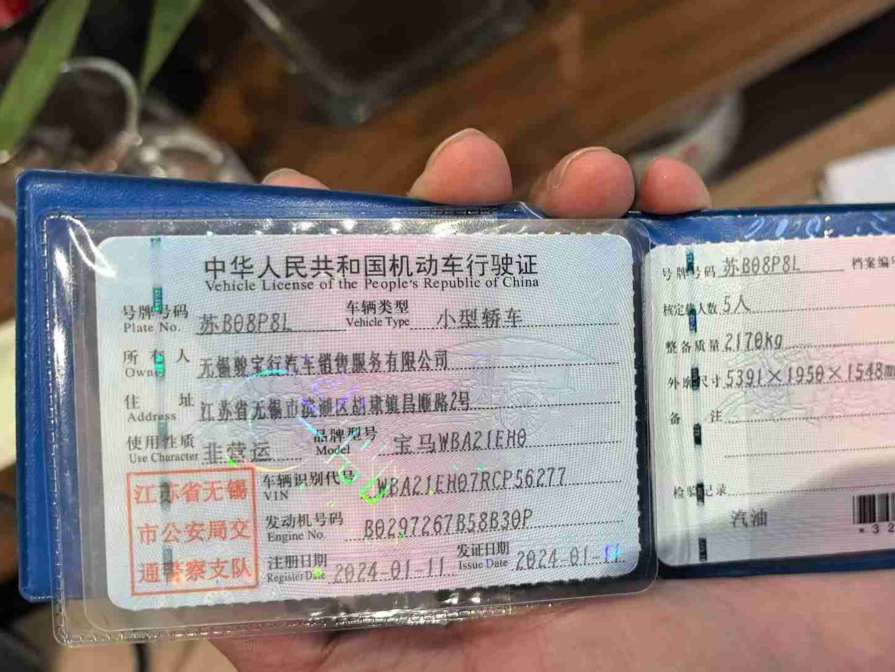 中华人民共和国机动车行驶证
Vehicle License of the People's Republic of China
号牌号码 苏B08P8L 车辆类型 小型轿车
Plate No. Vehicle Type
所有人 无锡骏宝行汽车销售服务有限公司
Owner
住址 江苏省无锡市滨湖区胡埭镇昌顺路2号
Address
使用性质 非营运 品牌型号 宝马WBA21EH0
Use Character Model
江苏省无锡
市公安局交
通警察支队
车辆识别代号 WBA21EH07RCP56277
VIN
发动机号码 B0297267B58B30P
Engine No.
注册日期 2024-01-11 发证日期 2024-01-11
Register Date Issue Date
号牌号码 苏B08P8L 档案编号
核定载人数 5人
整备质量 2170kg
外廓尺寸 5391×1950×1548
备注
检验记录
汽油
*32